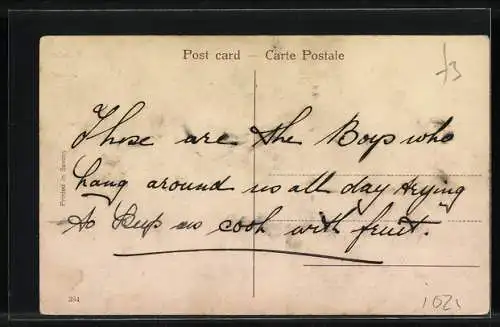 Post card — Carte Postale
These are the Boys who
hang around us all day trying
to keep us cool with fruit.
Printed in Saxony
384